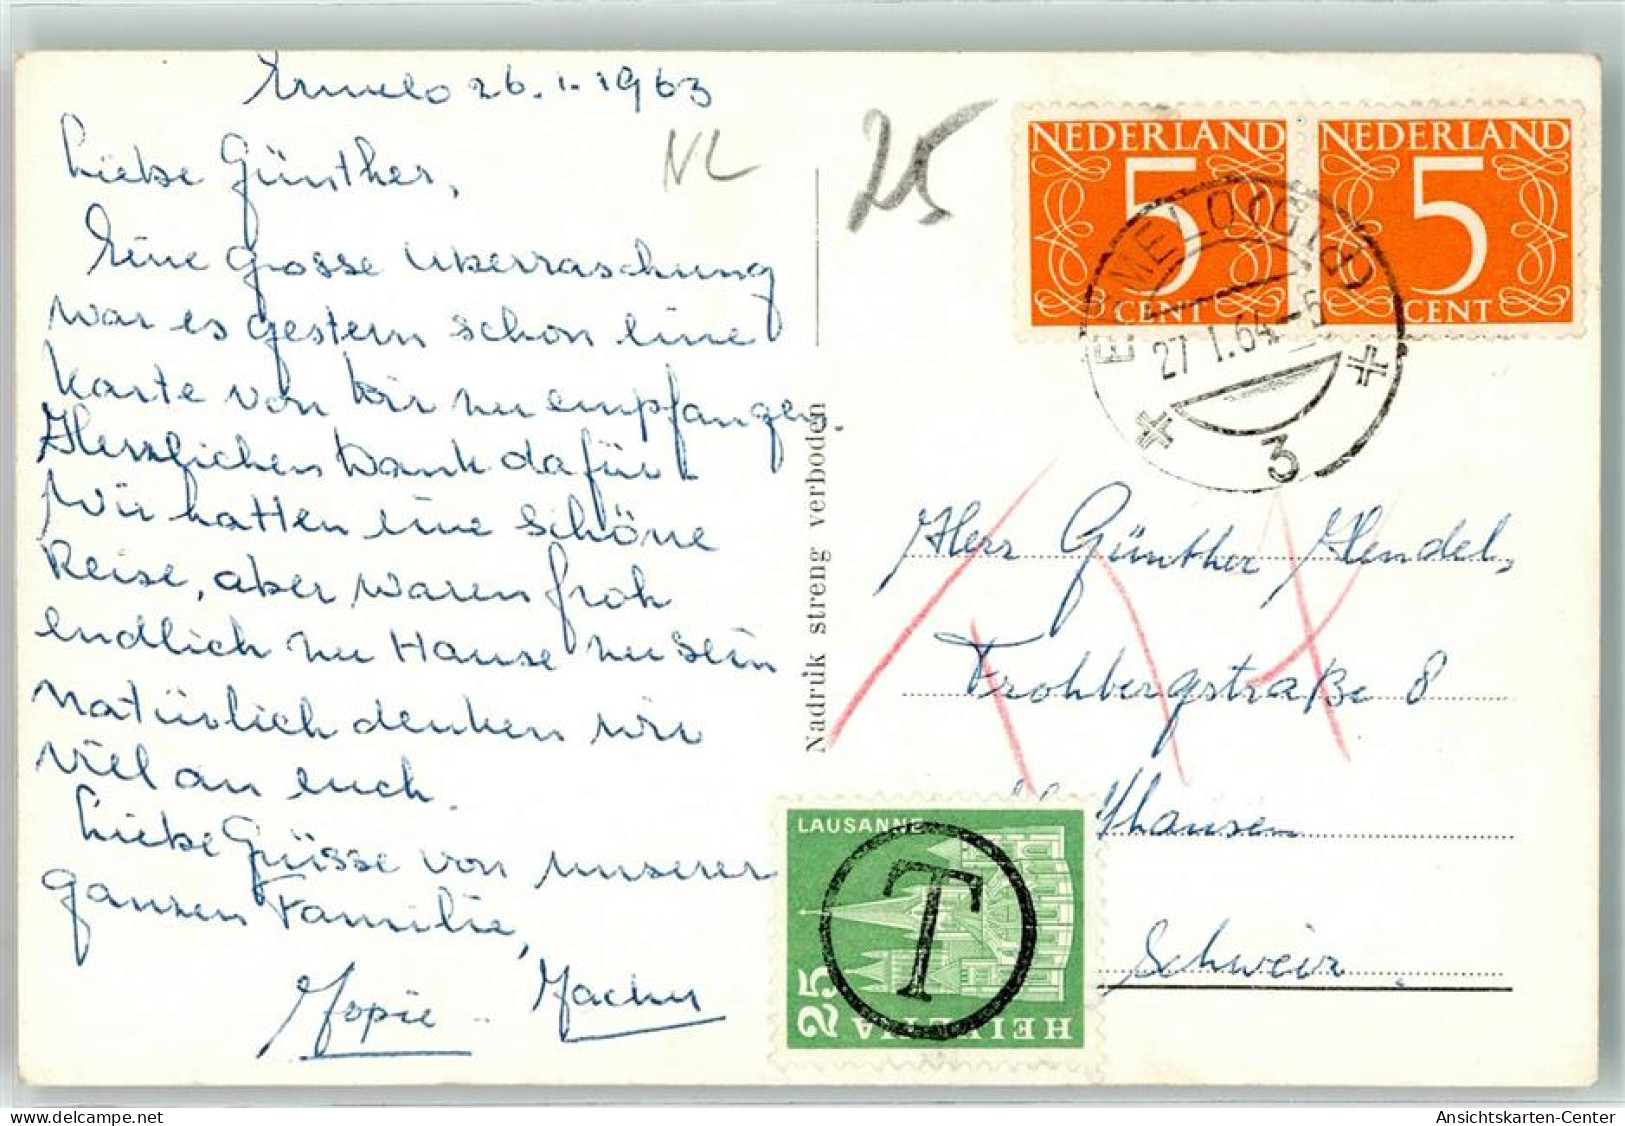 Ermelo 26.1.1963
Liebe Günther,
Eine grosse uberraschung
war es gestern schon eine
Karte von Dir zu empfangen.
Herzlichen Dank dafür.
Wir hatten eine schöne
Reise, aber waren froh
endlich zu Hause zu sein
natürlich denken wir
viel an euch.
Liebe Grüsse von unserer
ganzen Familie,
NL
25
NEDERLAND
5
CENT
NEDERLAND
5
CENT
ERMELO (GLD)
27.1.64-5
3
Nadruk streng verboden
Herr Günther Hendel,
Frohbergstraße 8
thausen
Schweiz
LAUSANNE
25
HELVETIA
T
delcampe.net
Ansichtskarten-Center